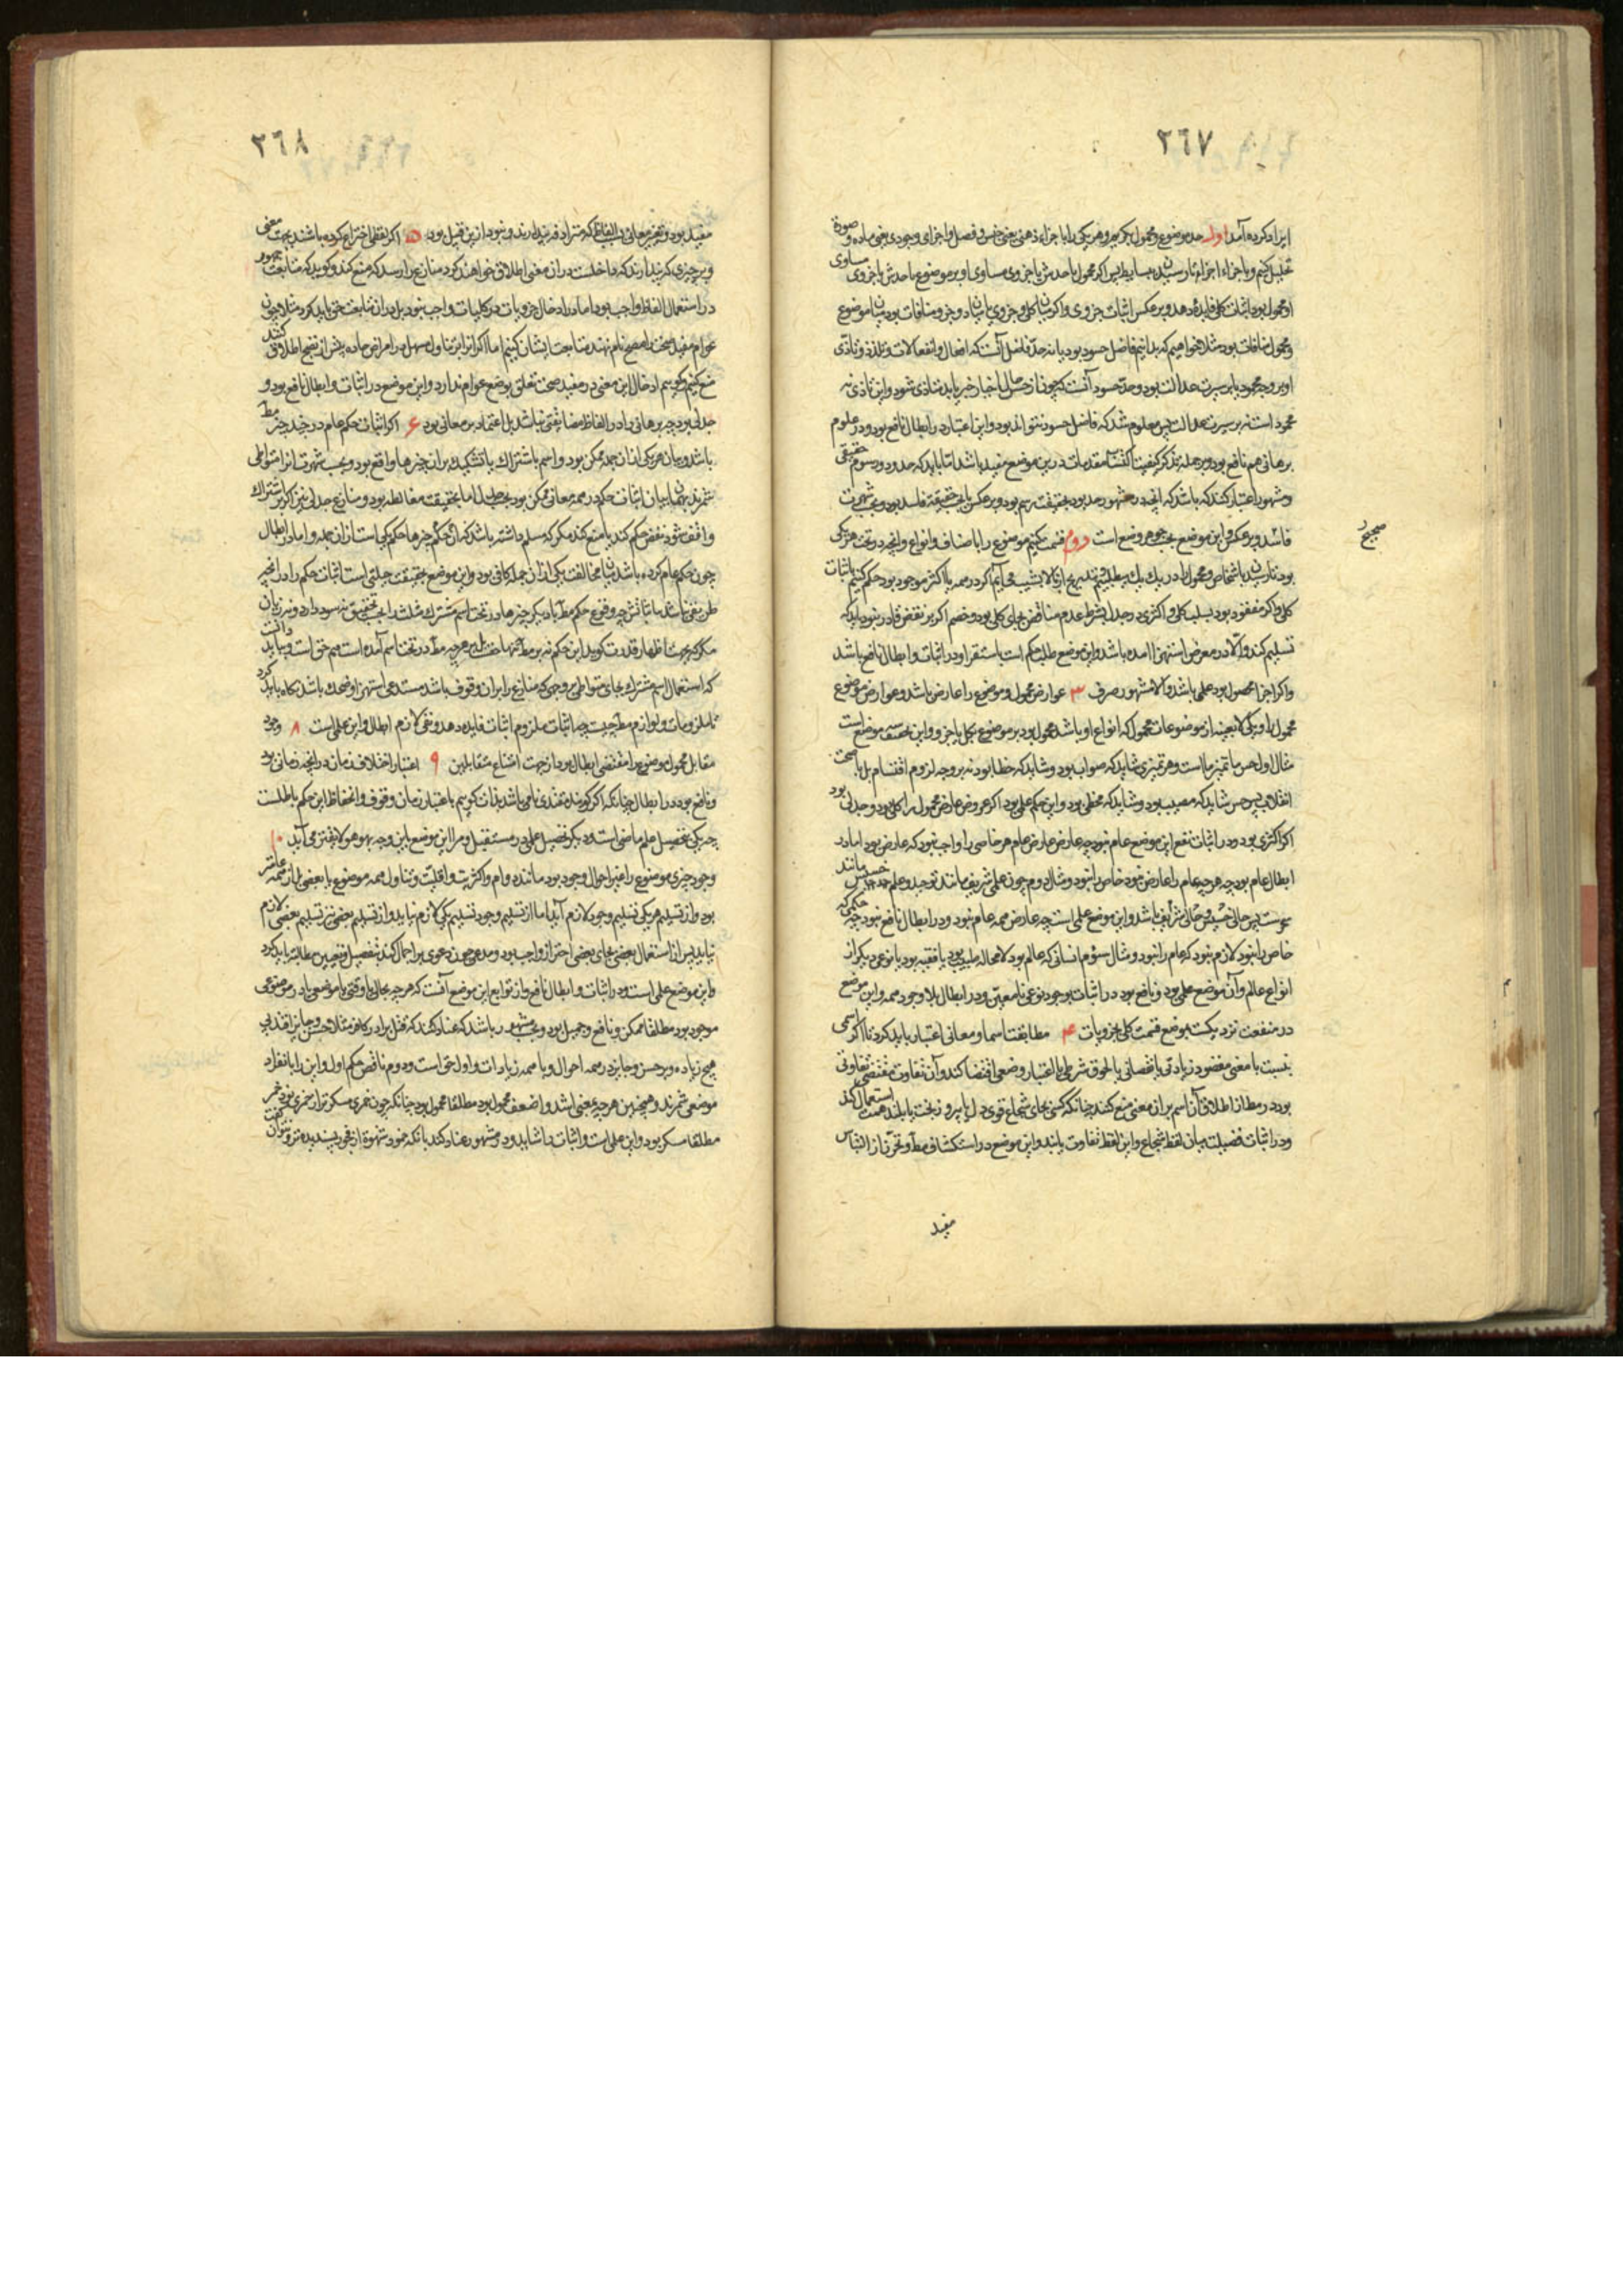 ٢٦٧
ایراد کرده آمد اول حد موضوع و محمول بگیریم و هر یکی را با جزاء ذهنی یعنی جنس و فصل و اجزای وجودی یعنی ماده و صورة
تحلیل کنیم و با جزاء اجزاء تا رسیدن ببسایط پس اگر محمول یا حدش یا جزوی مساوی او بر موضوع یا حدش یا جزوی مساوی
او محمول بود اثبات کلی فایده دهد و بر عکس اثبات جزوی و اگر میان کل و جزوی یا میان دو جزو منافات بود میان موضوع
و محمول منافات بود مثلا خواهیم که بدانیم فاضل حسود بود یا نه حد فاضل آنست که افعال و انفعالات و تلذذ و تاذی
او بر وجه محمود یا بر سیرت عدالت بود و حد حسود آنست که چون از حسن حال اخیار خبر یابد متاذی شود و این تاذی نه
محمود است نه بر سیرت عدالت پس معلوم شد که فاضل حسود نتواند بود و این اعتبار در ابطال نافع بود و در علوم
برهانی هم نافع بود و بر جمله تذکر کیفیت اکتساب مقدمات درین موضع مفید باشد اما باید که حدود و رسوم حقیقی
و مشهور اعتبار کنند که باشد که آنچه در مشهور حد بود بحقیقت رسم بود و بر عکس یا بحقیقة فاسد بود و بحسب شهرت
فاسد و بر عکس و این موضع بحسب جوهر وضع است دوم قسمت کنیم موضوع را باصناف و انواع و آنچه در تحت هر یکی
صحیح
بود تا رسیدن باشخاص و محمول را در یک یک میطلبیم و بتدریج از بالا بشیب می آییم اگر در همه یا اکثر موجود بود حکم کنیم باثبات
کلی و اگر مفقود بود بسلب کلی و اکثری در جدل بشرط عدم مناقض بجای کلی بود و خصم اگر بر نقض قادر نبود باید که
تسلیم کند و الا در معرض استهزا آمده باشد و این موضع طلب حکم است باستقرا و در اثبات و ابطال نافع باشد
و اگر اجزا محصول بود علمی باشد و الا مشهور صرف ٣ عوارض محمول و موضوع را عارض باشد و عوارض موضوع
محمول را و یکی لا بعینه از موضوعات محمول که انواع او باشد محمول بود بر موضوع بکل یا جزو و این بحقیقت سه موضع است
مثال اول حس ما تمیز ما است و هر تمیزی شاید که صواب بود و شاید که خطا بود نه بر وجه لزوم انقسام بل با صحت
انقلاب پس حس شاید که مصیب بود و شاید که مخطی بود و این حکم علمی بود اگر عروض عارض محمول را کلی بود و جدلی بود
اگر اکثری بود و در اثبات نفع این موضع عام نبود چه عارض عارض عام هر خاصی را واجب نبود که عارض بود اما در
ابطال عام بود چه هر چه عام را عارض نبود خاص را نبود و مثال دوم چون علمی شریف مانند توحید و علم خسیس مانند
پس حالی خسیس و حالی شریف باشد و این موضع علمی است چه عارض همه عام نبود و در ابطال نافع نبود چه حکمی که
خاص را نبود لازم نبود که عام را نبود و مثال سوم انسانی که عالم بود لا محاله طبیب بود یا فقیه بود یا نوعی دیگر از
انواع عالم و آن موضع علمی بود و نافع بود در اثبات بوجود نوعی نامعین و در ابطال بلا وجود همه و این موضع
در منفعت نزدیکست بموضع قسمت کلی بجزویات ۴ مطابقت اسما و معانی اعتبار باید کرد تا اگر اسمی
بنسبت با معنی مقصود زیادتی یا نقصانی یا لحوق شرطی یا اعتبار وضعی اقتضا کند و آن تفاوت مقتضی تفاوتی
بود در مط از اطلاق آن اسم بر آن معنی منع کنند چنانکه کسی بجای شجاع قوی دل یا پیروز بخت یا بلند همت استعمال کند
و در اثبات فضیلت میان لفظ شجاع و این لفظ تفاوت یابند و این موضع در استکشاف مط و تحرز از التباس
مفید
٢٦٨
مفید بود و تغیر معانی بالفاظی که مترادف پندارند و نبود ازین قبیل بود ۵ اگر لفظی اختراع کرده باشند بحسب معنی
و بر چیزی که پندارند که داخلست در آن معنی اطلاق خواهند کرد منازع را رسد که منع کند و گوید که متابعت جمهور
در استعمال الفاظ واجب بود اما در ادخال جزویات در کلیات واجب نبود بل در آن متابعت حق باید کرد مثلا چون
عوام مفید صحت را مصح نام نهند متابعت ایشان کنیم اما اگر از ایر تناول مسهل در امراض حاده پیش از نضج اطلاق کنند
منع کنیم و گوییم ادخال این معنی در مفید صحت تعلق بوضع عوام ندارد و این موضع در اثبات و ابطال نافع بود و
جدلی بود چه برهانی را در الفاظ مضایقتی نباشد بل اعتماد بر معانی بود ۶ اگر اثبات حکم عام در چند چیز مط
باشد و بیان هر یکی از آن جمله ممکن بود و اسم باشتراک یا تشکیک بر آن چیزها واقع بود و بحسب شهرت آنرا متواطی
شمرند بیان اثبات حکم در همه معانی ممکن بود بحسب جدل اما بحقیقت مغالطه بود و منازع جدلی نیز اگر بر اشتراک
واقف شود نقض حکم کند یا منع کند مگر که مسلم داشته باشد که آن حکم چیزها حکم یکی است از آن جمله و اما در ابطال
چون حکم عام کرده باشد بیان مخالفت یکی از آن جمله کافی بود و این موضع بحقیقت حیلتی است اثبات حکم را در آنچه
نفی ثابتش چه وقوع حکم مط بر دیگر چیزها در تحت اسم مشترک مثلث را بحسب تحقیق نه سود دارد و نه زیان
مگر که بر جهت اظهار قدرت گوید این حکم نه بر مط تنها بل بر هر چه با مط در تحت اسم آمده است هم حق است و باید دانست
که استعمال اسم مشترک بجای متواطی بر وجهی که منازع را بر آن وقوف باشد مستدعی استهزا و ضحک باشد نگاه باید کرد
تا ملزومات و لوازم مط چیست چه اثبات ملزوم اثبات فایده دهد و نفی لازم ابطال و این علمی است ٨ وجود
مقابل محمول موضوع را مقتضی ابطال بود از جهت امتناع متقابلین ٩ اعتبار اختلاف زمان در آنچه زمانی بود
و نافع بود در ابطال چنانکه اگر گویند تغذی نامی باشد بذات گوییم باعتبار زمان و قوف و انحفاظ این حکم باطلست
چه یکی تحصیل علم ماضی است و دیگر تحصیل علمی در مستقبل و مرا این موضع باین وجه بهو هو لایقتر می آید ١٠
وجود چیزی موضوع را بغیر احوال وجود بود مانند دوام و اکثریت و اقلیت و تناول همه موضوع یا بعضی اما از همه عامتر
بود و از تسلیم هر یکی تسلیم وجود لازم آید اما از تسلیم وجود تسلیم یکی لازم نیاید و از تسلیم بعضی نیز تسلیم بعضی لازم
نیاید پس از استعمال بعضی بجای بعضی احتراز واجب بود و مدعی چون دعوی بر اجمال کند بتفصیل و تعیین مطالبه باید کرد
و این موضع علمی است و در اثبات و ابطال نافع و از توابع این موضع آنست که هر چه بحالی یا وقتی یا موضعی یا در موضوعی
موجود بود مطلقا ممکن و نافع و جمیل بود و بحسب مشهور باشد که عناد کنند که قتل برادر کافر مثلا حسن و جایز افتد بی
هیچ زیاده و بر حسن و جایز در همه احوال و با همه زیادات و اول حق است و دوم ناقض حکم اول و این را بانفراد
موضعی شمرند و همچنین هر چه بمعنی اشد و اضعف محمول بود مطلقا محمول بود چنانکه چون خمری مسکرتر از خمری بود خمر
مطلقا مسکر بود و این علمی است و اثبات را شاید و در مشهور عناد کند بآنکه خمود شهوة از فجور پسندیده تر و نتوان گفت